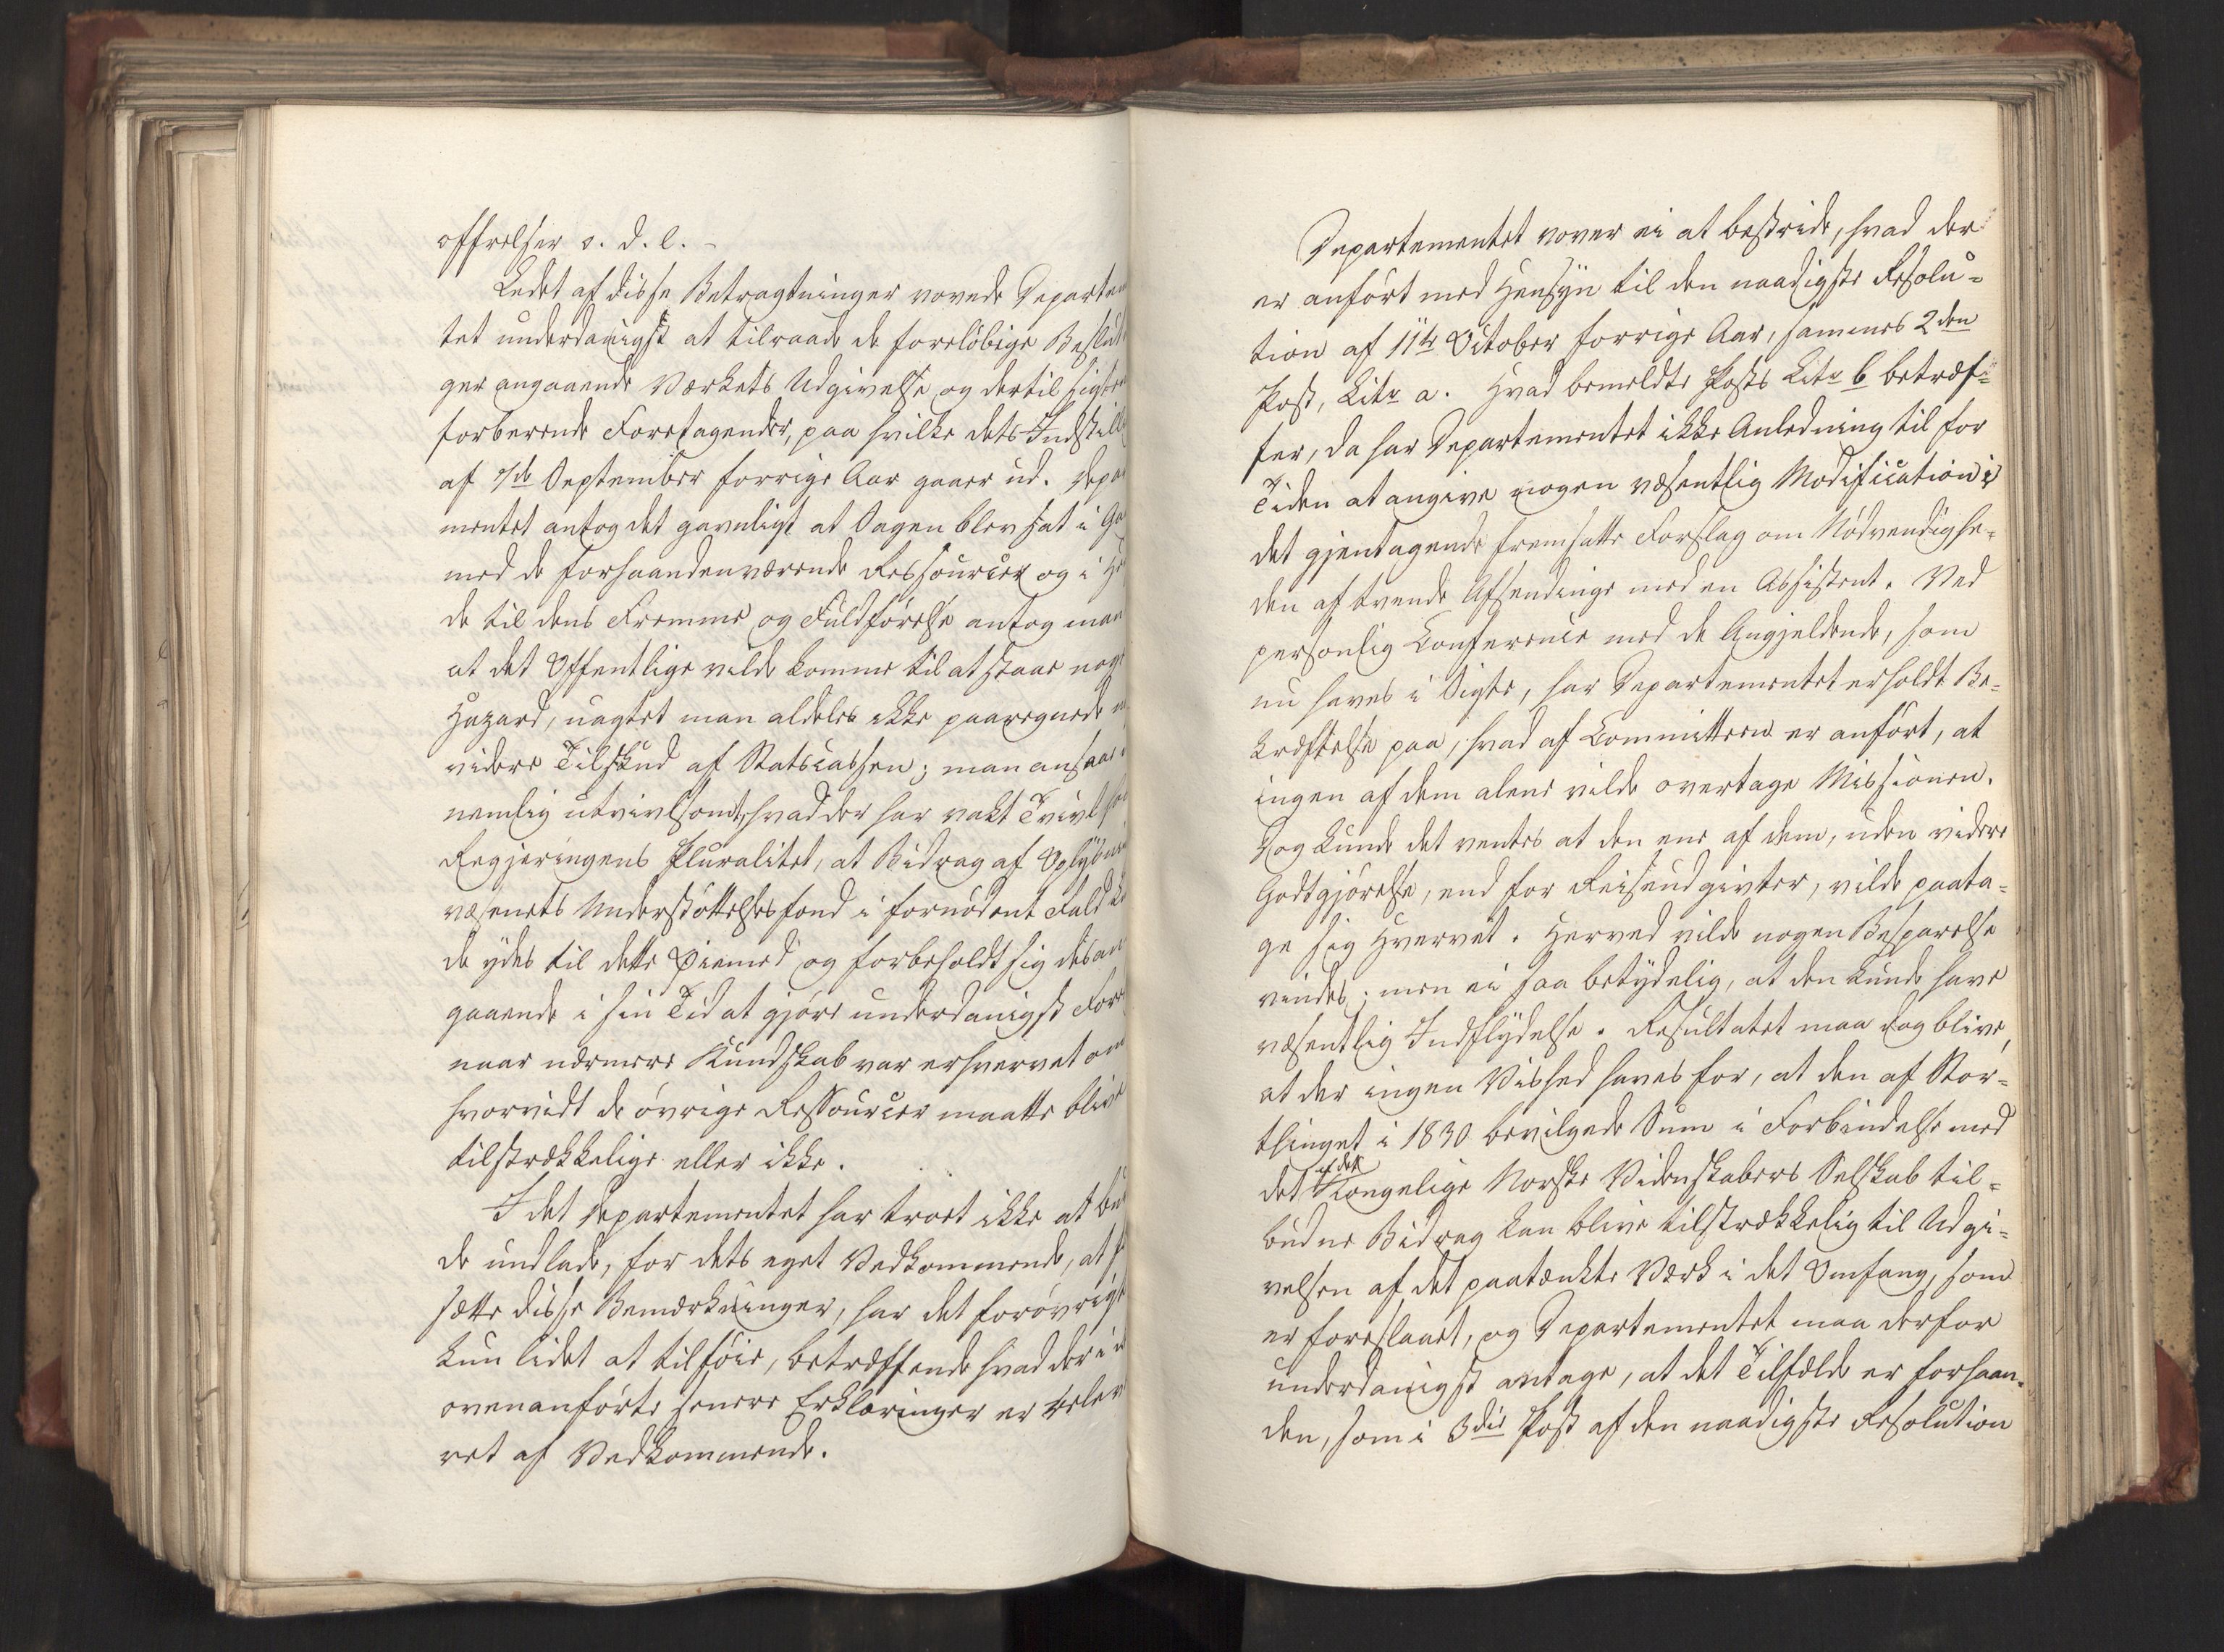 offrelser o. d. l. -
Ledet af disse Betragtninger vovede Departem
tet underdanigst at tilraade de foreløbige Beslut
ger angaaende Værkets Udgivelse og dertil sigten
forberende Foretagender, paa hvilke dets Indstill
af 7de September forrige Aar gaaer ud. Depar
mentet antog det gavnligt at Sagen blev sat i Ga
med de forhaandenværende Ressourcer og i He
de til dens Fremme og Fuldførelse antog man
at det Offentlige vilde komme til at staae noge
Hazard, uagtet man aldeles ikke paaregnede
videre Tilskud af Statscassen; man ansaae
nemlig utvivlsomt, hvad der har vakt Tvivl ho
Regjeringens Pluralitet, at Bidrag af Oplysnin
væsenets Understøttelsesfond i fornødent Fald ku
de ydes til dette Øiemed og forbeholdt sig desan
gaaende i sin Tid at gjøre underdanigst Fore
naar nærmere Kundskab var erhvervet om
hvorvidt de øvrige Ressourcer maatte blive
tilstrækkelige eller ikke.
I det Departementet har troet ikke at bur
de undlade, for dets eget Vedkommende, at f
sætte disse Bemærkninger, har det forøvrigt
kun lidet at tilføie, betræffende hvad der i
ovenanførte senere Erklæringer er relev
ret af Vedkommende.
Departementet vover ei at bestride, hvad der
er anført med Hensyn til den naadigste Resolu-
tion af 11te October forrige Aar, sammes 2den
Post, Litr a. Hvad bemeldte Posts Litr b betræf-
fer, da har Departementet ikke Anledning til for
Tiden at angive nogen væsentlig Modification i
det gjentagende fremsatte Forslag om Nødvendighe-
den af tvende Afsendinge med en Assistent. Ved
personlig Conference med de Angjeldende, som
nu haves i Sigte, har Departementet erholdt Be-
kræftelse paa, hvad af Committeen er anført, at
ingen af dem alene vilde overtage Missionen.
Dog kunde det ventes at den ene af dem, uden videre
Godtgjørelse, end for Reiseudgivter, vilde paata-
ge sig Hvervet. Herved vilde nogen Besparelse
vindes; men ei saa betydelig, at den kunde have
væsentlig Indflydelse. Resultatet maa dog blive,
at der ingen Vished haves for, at den af Stor-
thinget i 1830 bevilgede Sum i Forbindelse med
det af det Kongelige Norske Videnskabers Selskab til-
budne Bidrag kan blive tilstrækkelig til Udgi-
velsen af det paatænkte Værk i det Omfang, som
er foreslaaet, og Departementet maa derfor
underdanigst antage, at det Tilfælde er forhaan-
den, som i 3die Post af den naadigste Resolution